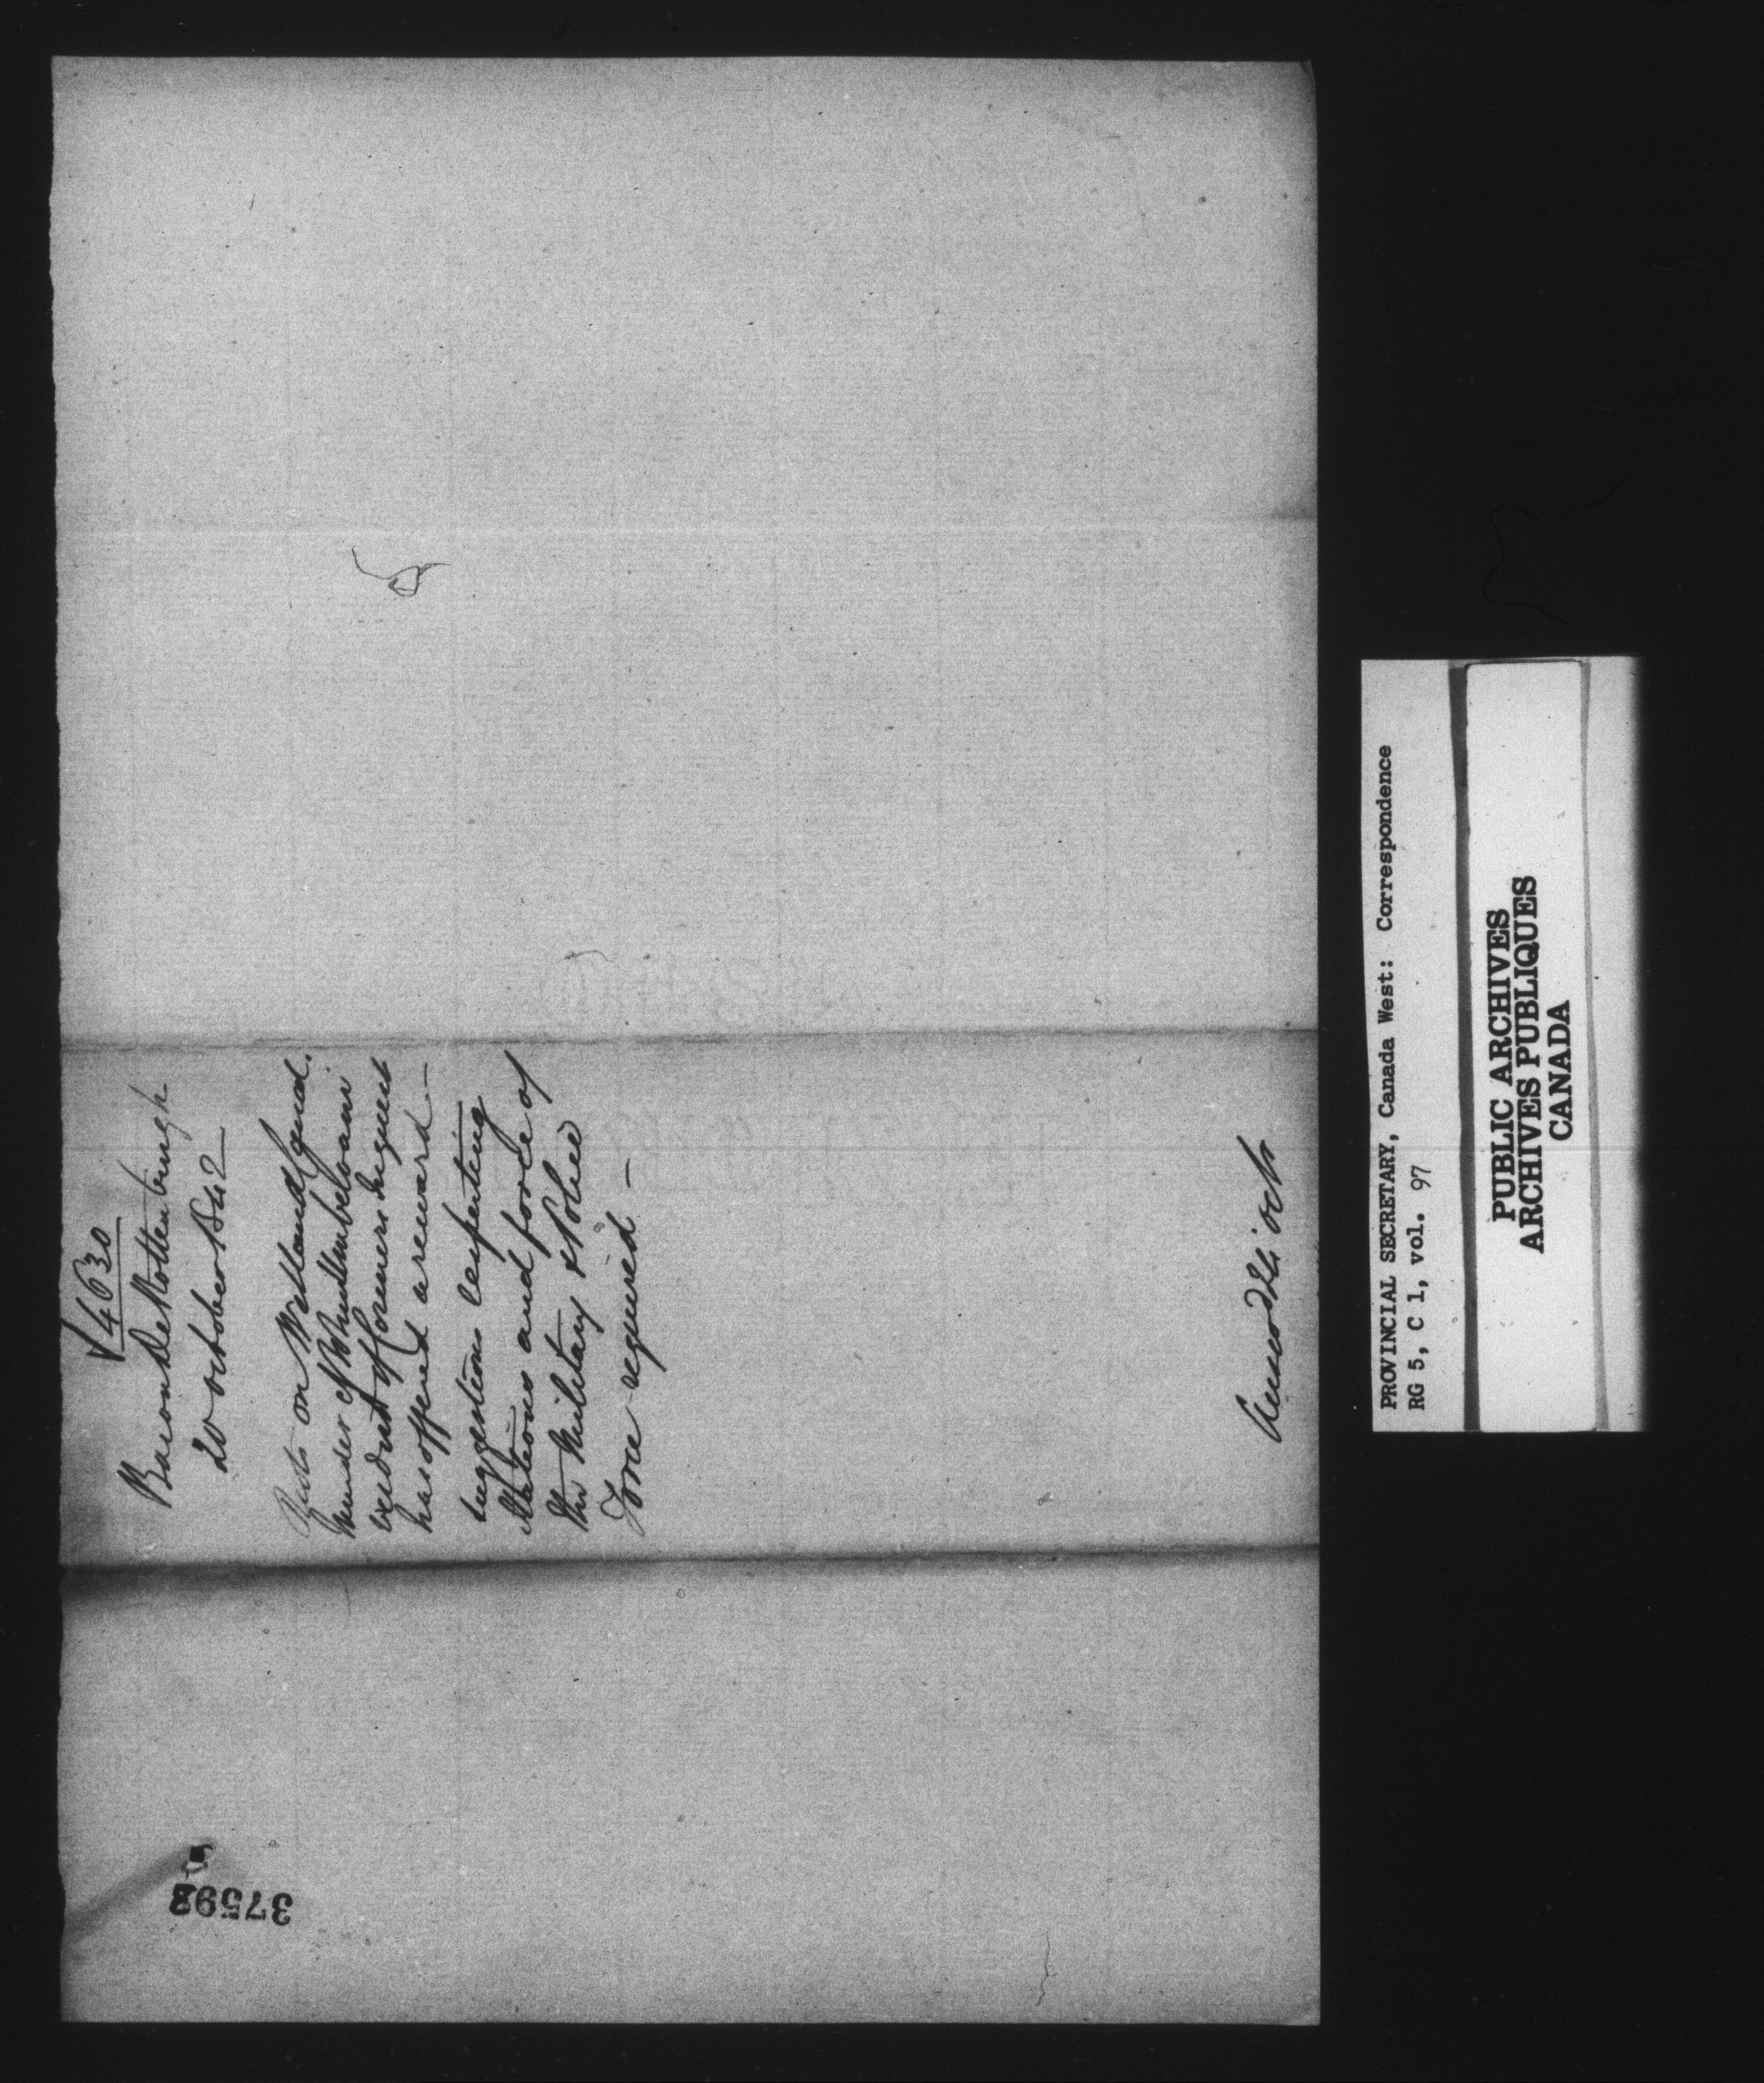 4630
Baron De Rottenburgh
20 October 1842
on Welland Canal.
Murder of
verdict of Coroners Inquest
has offered a reward —
suggestions respecting
Stations and force of
the Military & Police
Force required —
24 Oct
37592
PROVINCIAL SECRETARY, Canada West: Correspondence
RG 5, C 1, vol. 97
PUBLIC ARCHIVES
ARCHIVES PUBLIQUES
CANADA